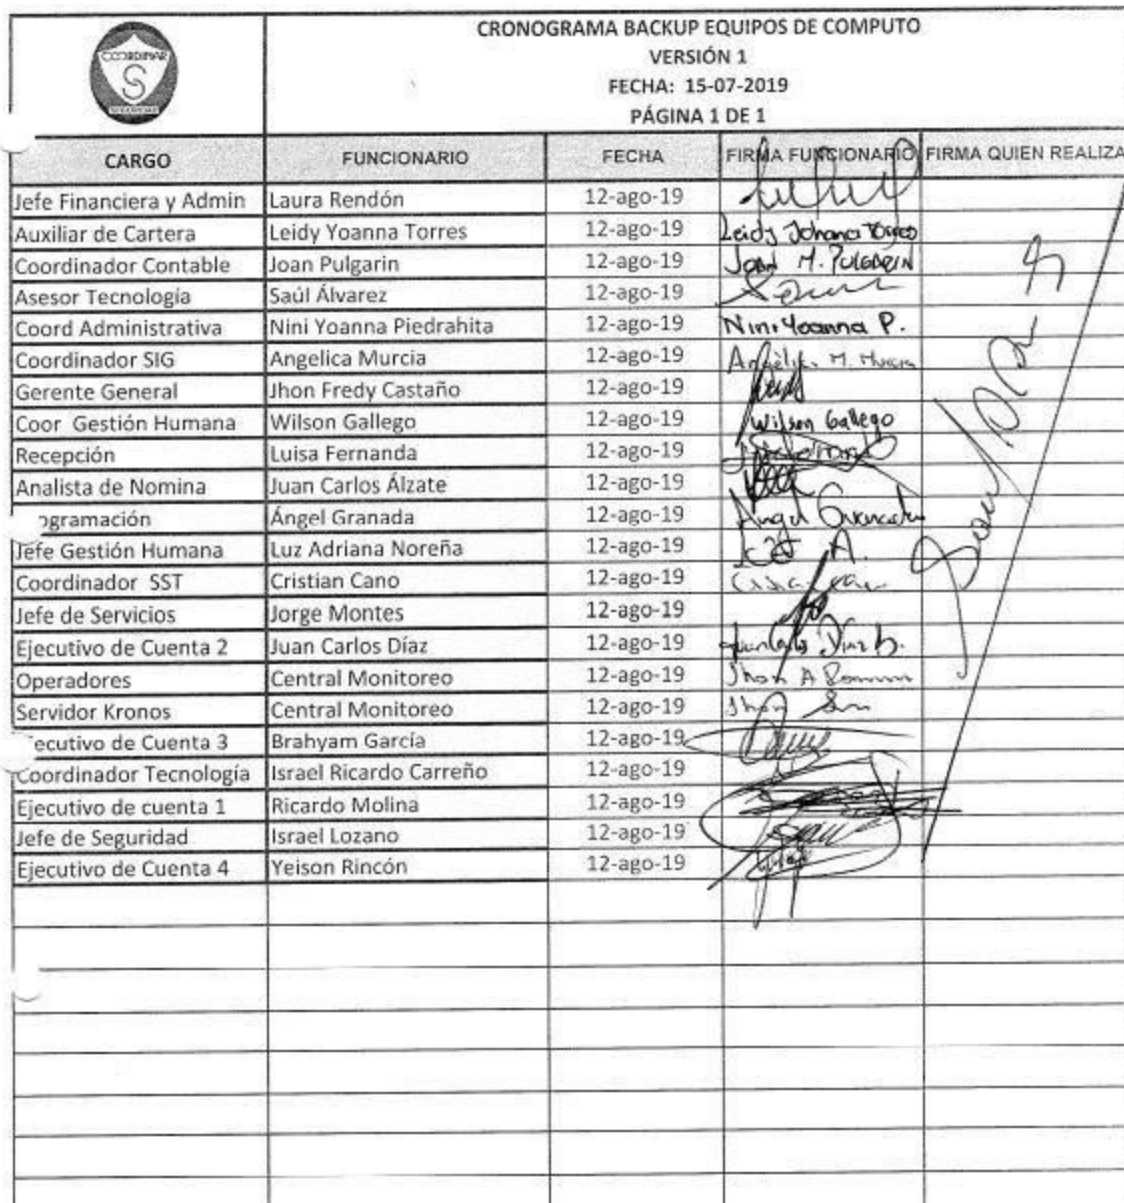 COORDINAR
SEGURIDAD
CRONOGRAMA BACKUP EQUIPOS DE COMPUTO
VERSIÓN 1
FECHA: 15-07-2019
PÁGINA 1 DE 1
CARGO FUNCIONARIO FECHA FIRMA FUNCIONARIO FIRMA QUIEN REALIZA
Jefe Financiera y Admin Laura Rendón 12-ago-19
Auxiliar de Cartera Leidy Yoanna Torres 12-ago-19 Leidy Johana Torres
Coordinador Contable Joan Pulgarin 12-ago-19 JOAN M. PULGARIN
Asesor Tecnología Saúl Álvarez 12-ago-19
Coord Administrativa Nini Yoanna Piedrahita 12-ago-19 Nini Yoanna P.
Coordinador SIG Angelica Murcia 12-ago-19 Angélica M. Murcia
Gerente General Jhon Fredy Castaño 12-ago-19
Coor Gestión Humana Wilson Gallego 12-ago-19 Wilson Gallego
Recepción Luisa Fernanda 12-ago-19
Analista de Nomina Juan Carlos Álzate 12-ago-19
ogramación Ángel Granada 12-ago-19 Angel Granada
Jefe Gestión Humana Luz Adriana Noreña 12-ago-19
Coordinador SST Cristian Cano 12-ago-19
Jefe de Servicios Jorge Montes 12-ago-19
Ejecutivo de Cuenta 2 Juan Carlos Díaz 12-ago-19 Juan Carlos Díaz
Operadores Central Monitoreo 12-ago-19 Jhon A
Servidor Kronos Central Monitoreo 12-ago-19 Jhon
ecutivo de Cuenta 3 Brahyam García 12-ago-19
Coordinador Tecnología Israel Ricardo Carreño 12-ago-19
Ejecutivo de cuenta 1 Ricardo Molina 12-ago-19
Jefe de Seguridad Israel Lozano 12-ago-19
Ejecutivo de Cuenta 4 Yeison Rincón 12-ago-19